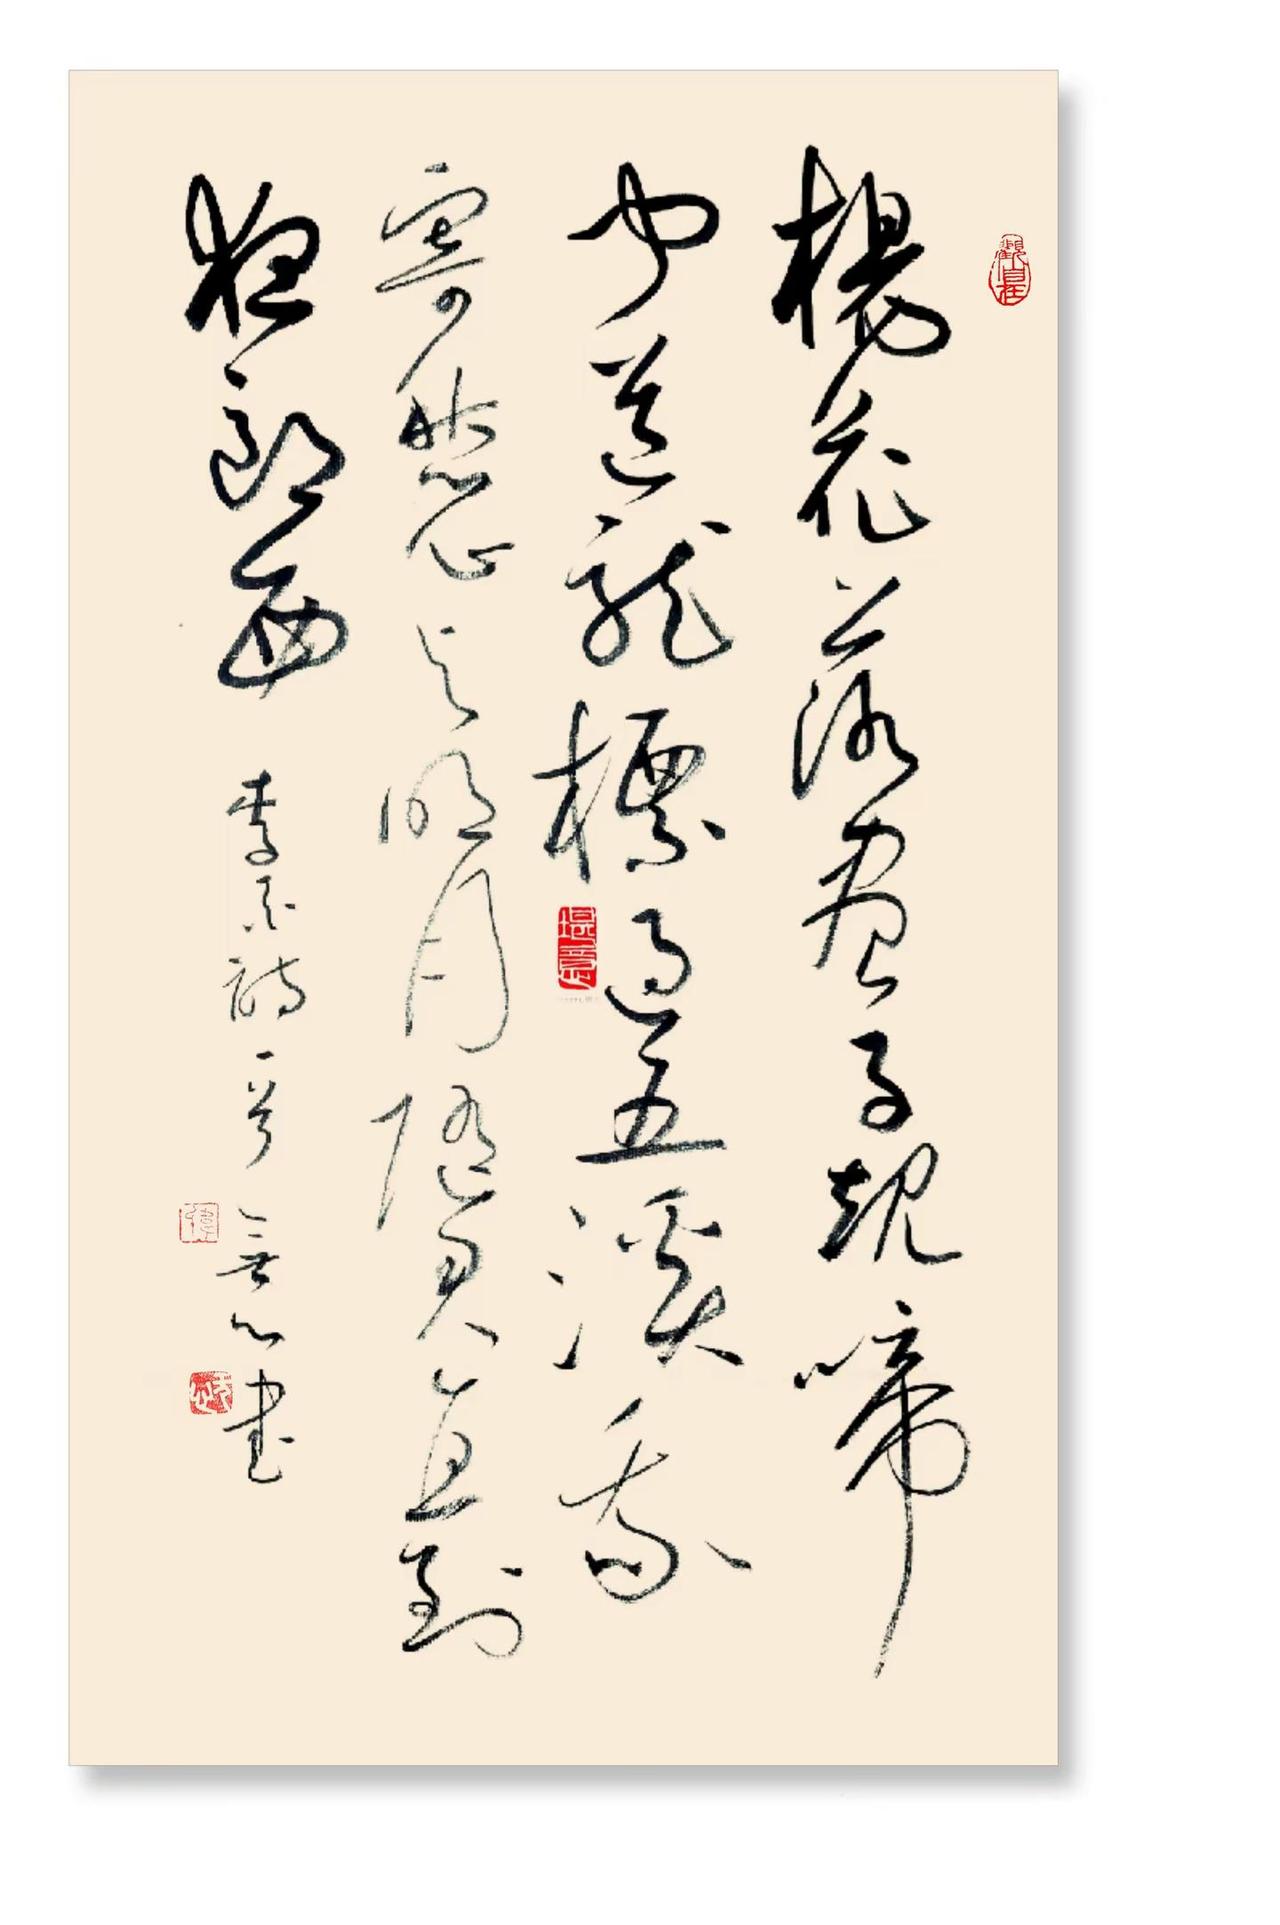 觀自在
楊花落盡子規啼
聞道龍標過五溪我
寄愁心与明月隨君直到
夜郎西
李白詩一首 無心書